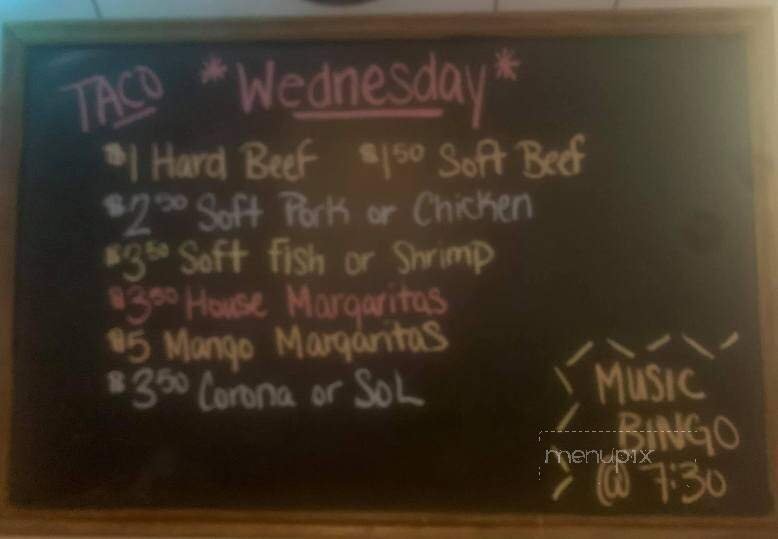 TACO *Wednesday*
$1 Hard Beef $1 50 Soft Beef
$2 50 Soft Pork or Chicken
$3 50 Soft fish or Shrimp
$3 50 House Margaritas
$5 Mango Margaritas
$3 50 Corona or SOL
MUSIC
BINGO
menupix
@ 7:30